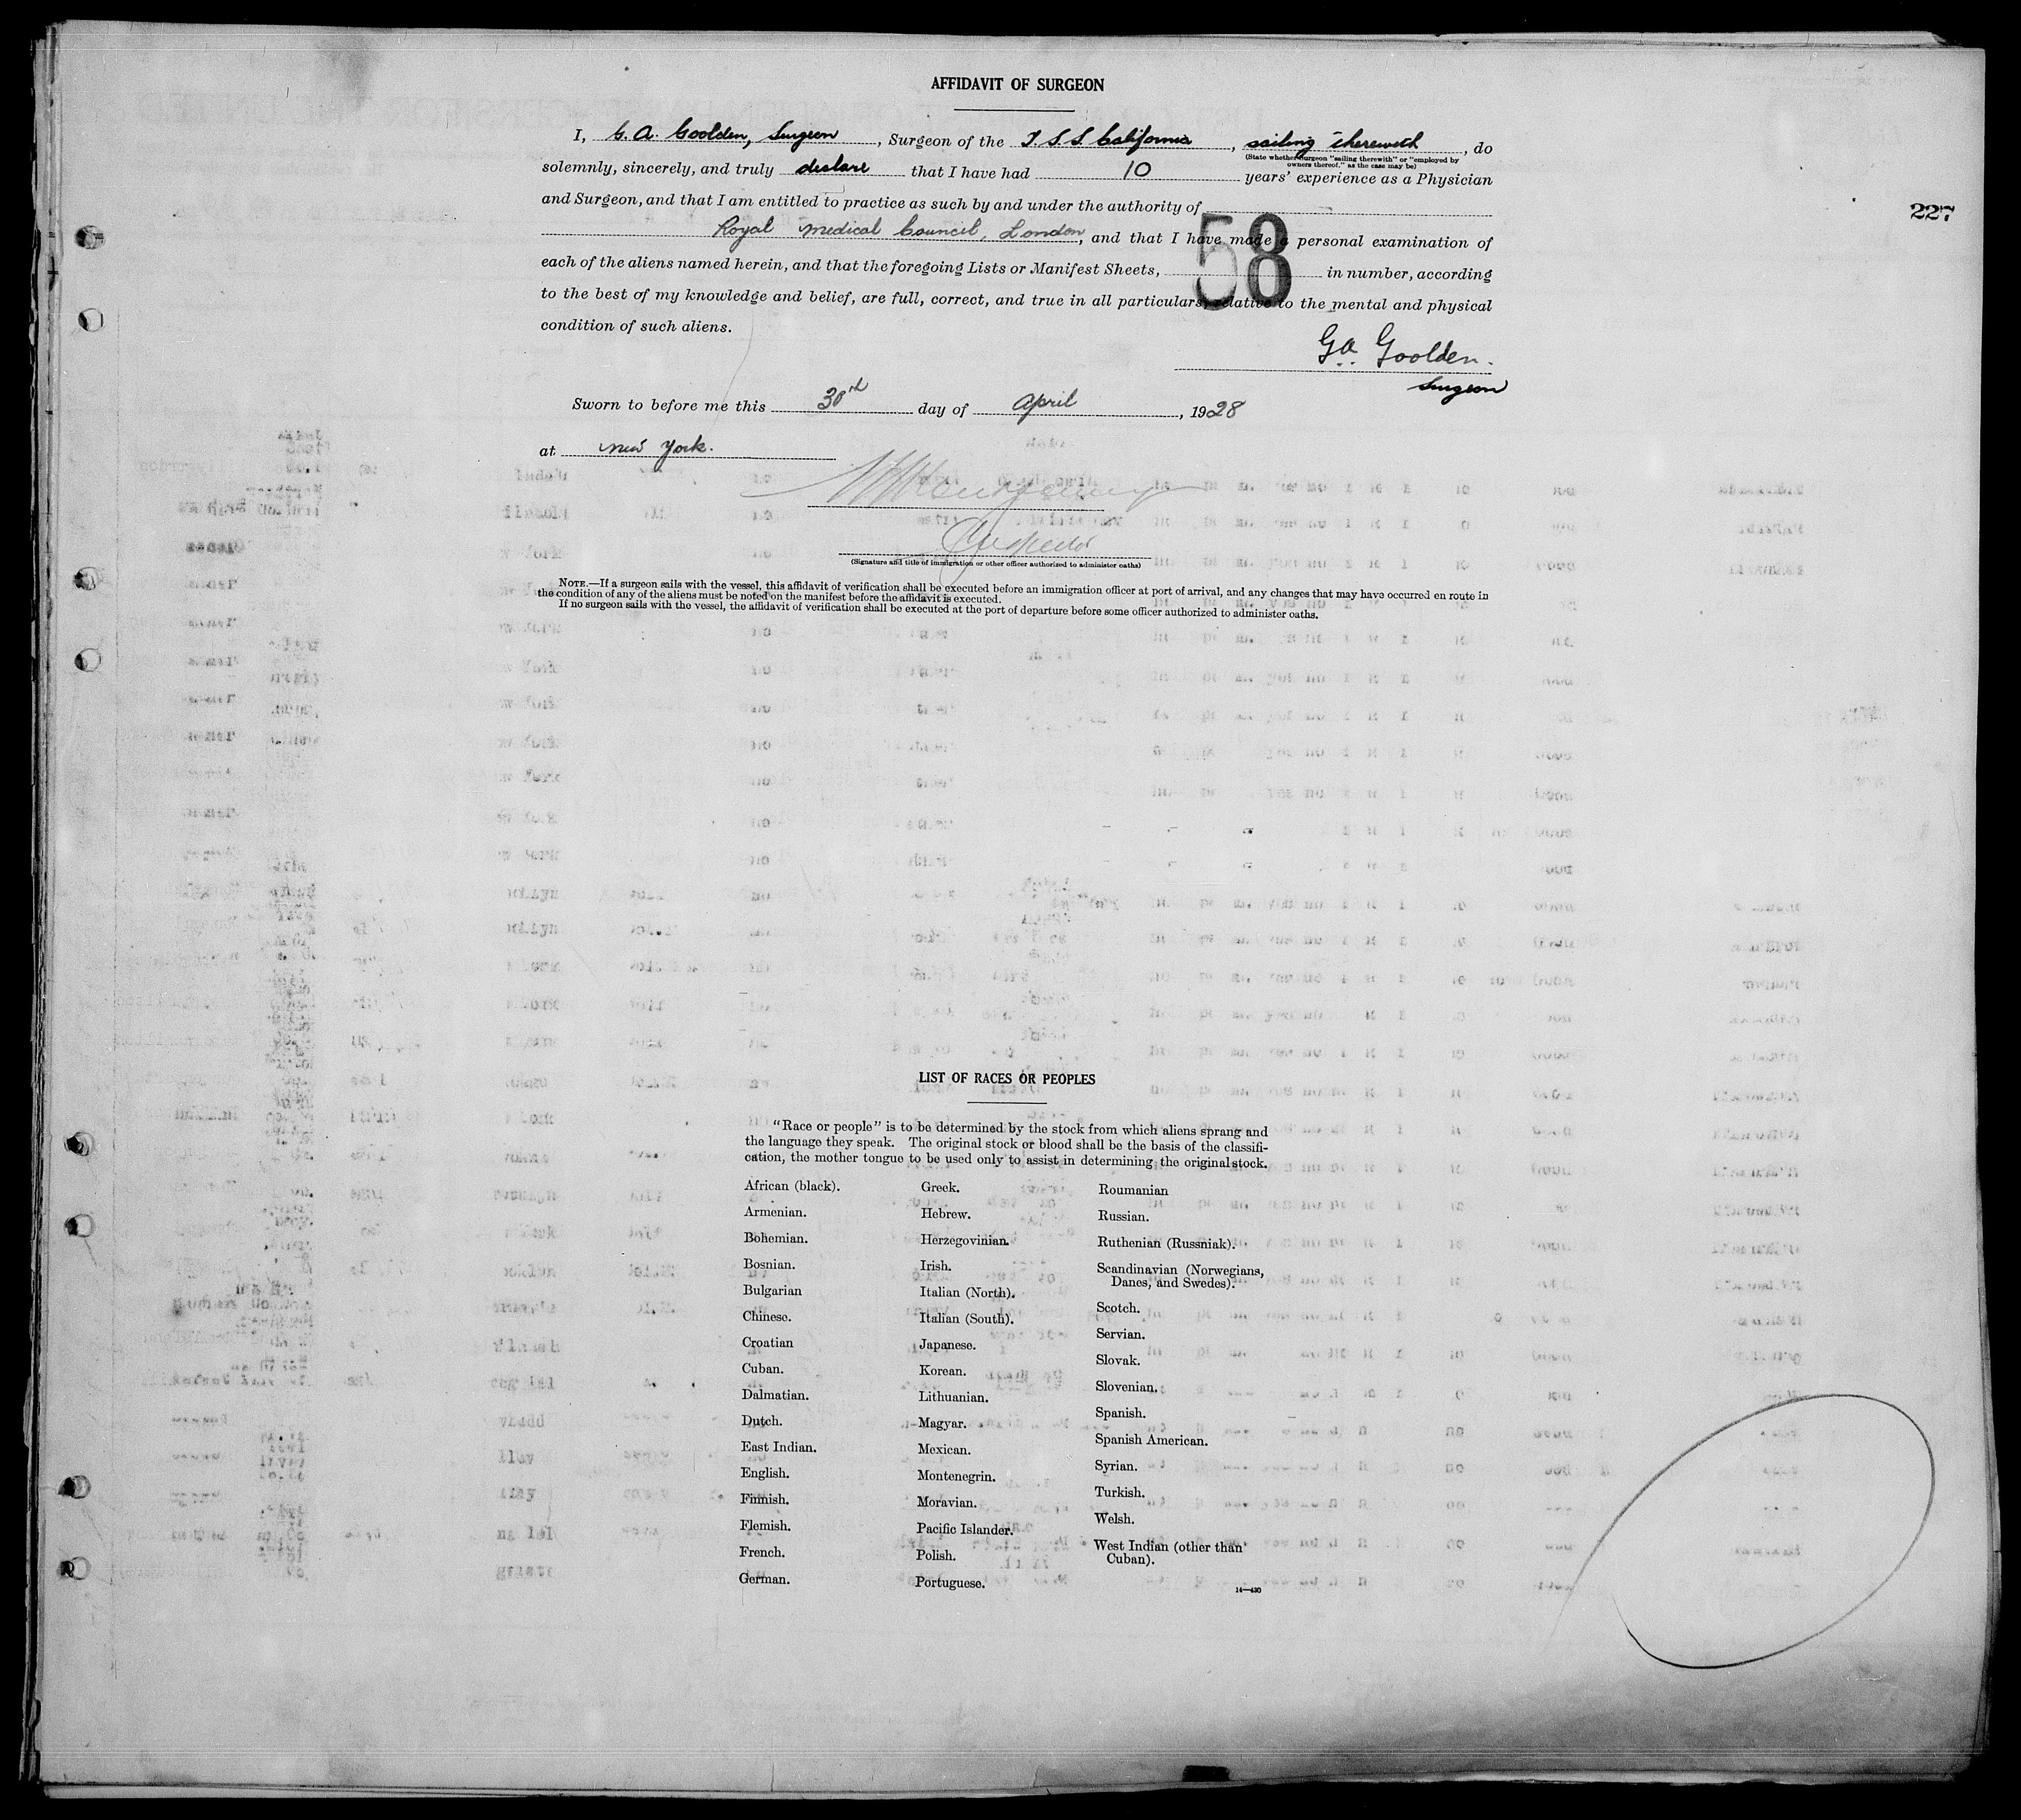 AFFIDAVIT OF SURGEON
227
I, G. A. Goolden, Surgeon, Surgeon of the T.S.S. California, sailing therewith, do
(State whether surgeon "sailing therewith" or "employed by
owners thereof," as the case may be)
solemnly, sincerely, and truly declare that I have had 10 years' experience as a Physician
and Surgeon, and that I am entitled to practice as such by and under the authority of
Royal Medical Council, London, and that I have made a personal examination of
58
each of the aliens named herein, and that the foregoing Lists or Manifest Sheets, in number, according
to the best of my knowledge and belief, are full, correct, and true in all particulars, relative to the mental and physical
condition of such aliens.
G A Goolden.
Surgeon
Sworn to before me this 30th day of April, 1928
at New York.
(Signature and title of immigration or other officer authorized to administer oaths)
NOTE.—If a surgeon sails with the vessel, this affidavit of verification shall be executed before an immigration officer at port of arrival, and any changes that may have occurred en route in
the condition of any of the aliens must be noted on the manifest before the affidavit is executed.
If no surgeon sails with the vessel, the affidavit of verification shall be executed at the port of departure before some officer authorized to administer oaths.
LIST OF RACES OR PEOPLES
"Race or people" is to be determined by the stock from which aliens sprang and
the language they speak. The original stock or blood shall be the basis of the classifi-
cation, the mother tongue to be used only to assist in determining the original stock.
African (black).
Armenian.
Bohemian.
Bosnian.
Bulgarian
Chinese.
Croatian
Cuban.
Dalmatian.
Dutch.
East Indian.
English.
Finnish.
Flemish.
French.
German.
Greek.
Hebrew.
Herzegovinian.
Irish.
Italian (North).
Italian (South).
Japanese.
Korean.
Lithuanian.
Magyar.
Mexican.
Montenegrin.
Moravian.
Pacific Islander.
Polish.
Portuguese.
Roumanian
Russian.
Ruthenian (Russniak).
Scandinavian (Norwegians,
Danes, and Swedes).
Scotch.
Servian.
Slovak.
Slovenian.
Spanish.
Spanish American.
Syrian.
Turkish.
Welsh.
West Indian (other than
Cuban).
14—430